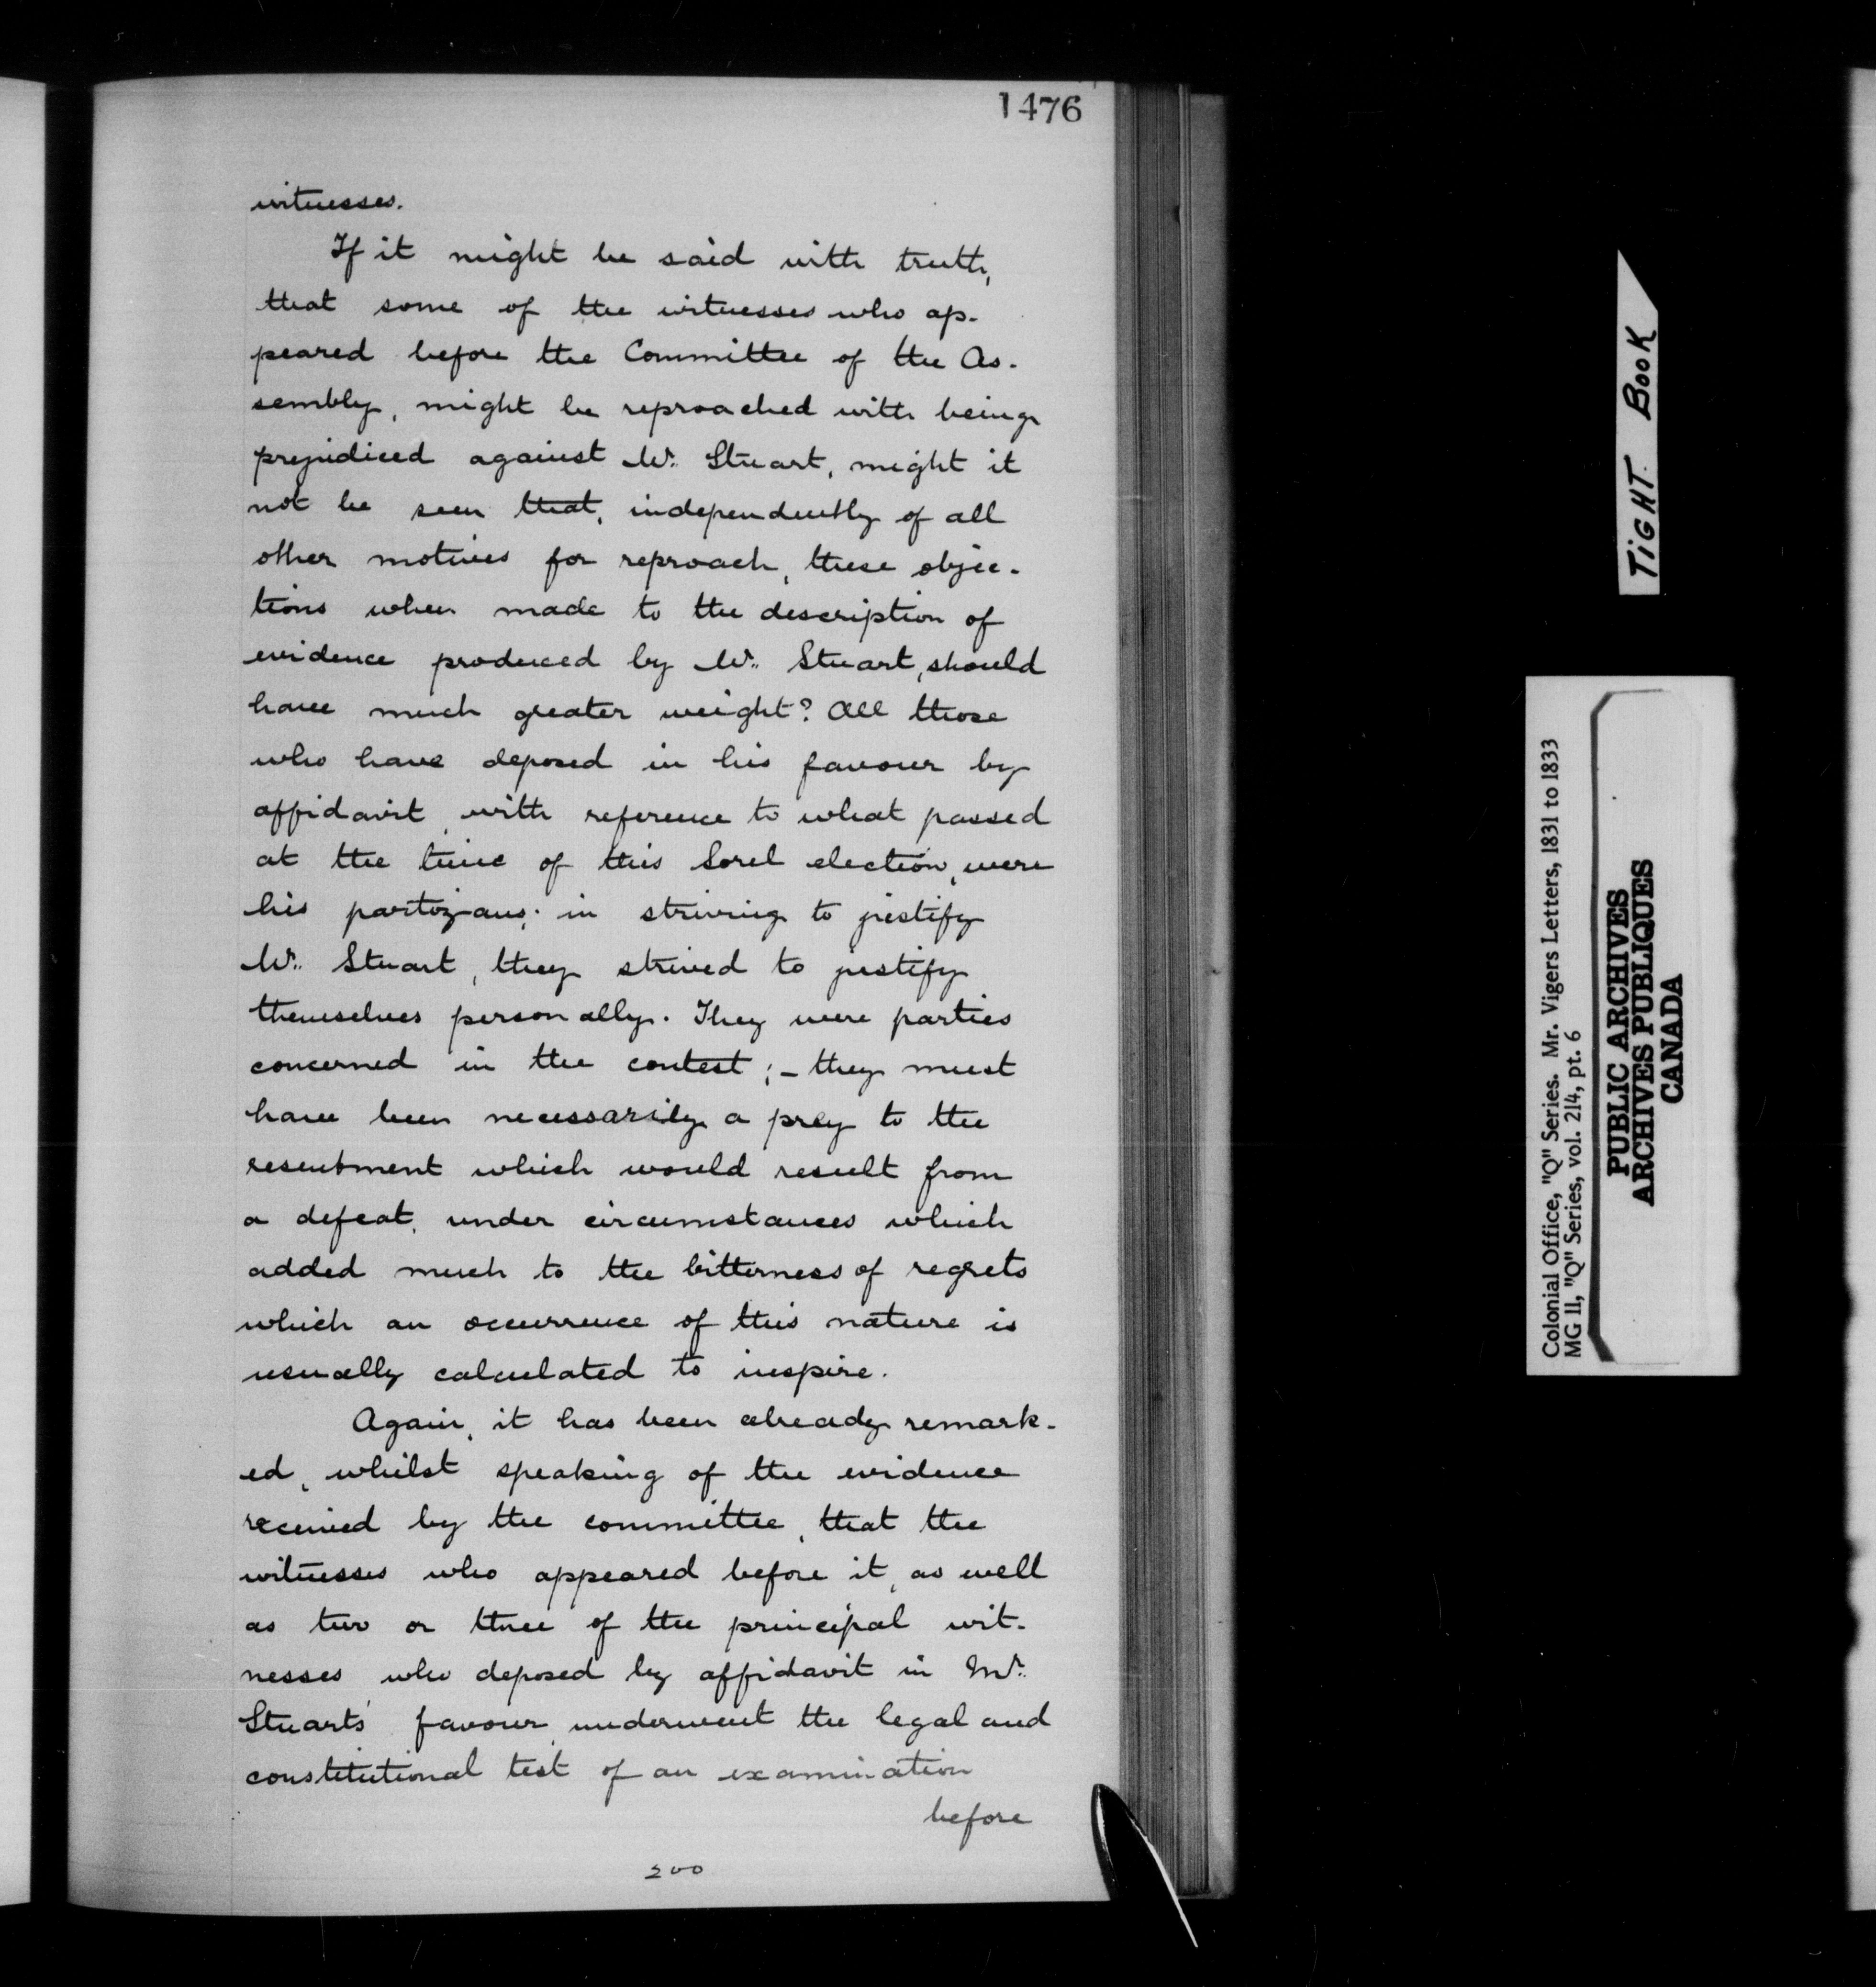 1476
witnesses.
If it might be said with truth,
that some of the witnesses who ap-
peared before the Committee of the As-
sembly, might be reproached with being
prejudiced against Mr. Stuart, might it
not be seen that, independently of all
other motives for reproach, these objec-
tions when made to the description of
evidence produced by Mr. Stuart, should
have much greater weight? All those
who have deposed in his favour by
affidavit, with reference to what passed
at the time of this Sorel election, were
his partizans; in striving to justify
Mr. Stuart, they strived to justify
themselves personally. They were parties
concerned in the contest; - they must
have been necessarily a prey to the
resentment which would result from
a defeat, under circumstances which
added much to the bitterness of regrets
which an occurrence of this nature is
usually calculated to inspire.
Again, it has been already remark-
ed, whilst speaking of the evidence
received by the committee, that the
witnesses who appeared before it, as well
as two or three of the principal wit-
nesses who deposed by affidavit in Mr.
Stuarts' favour underwent the legal and
constitutional test of an examination
before
200
TIGHT BOOK
Colonial Office, "Q" Series. Mr. Vigers Letters, 1831 to 1833
MG 11, "Q" Series, vol. 214, pt. 6
PUBLIC ARCHIVES
ARCHIVES PUBLIQUES
CANADA